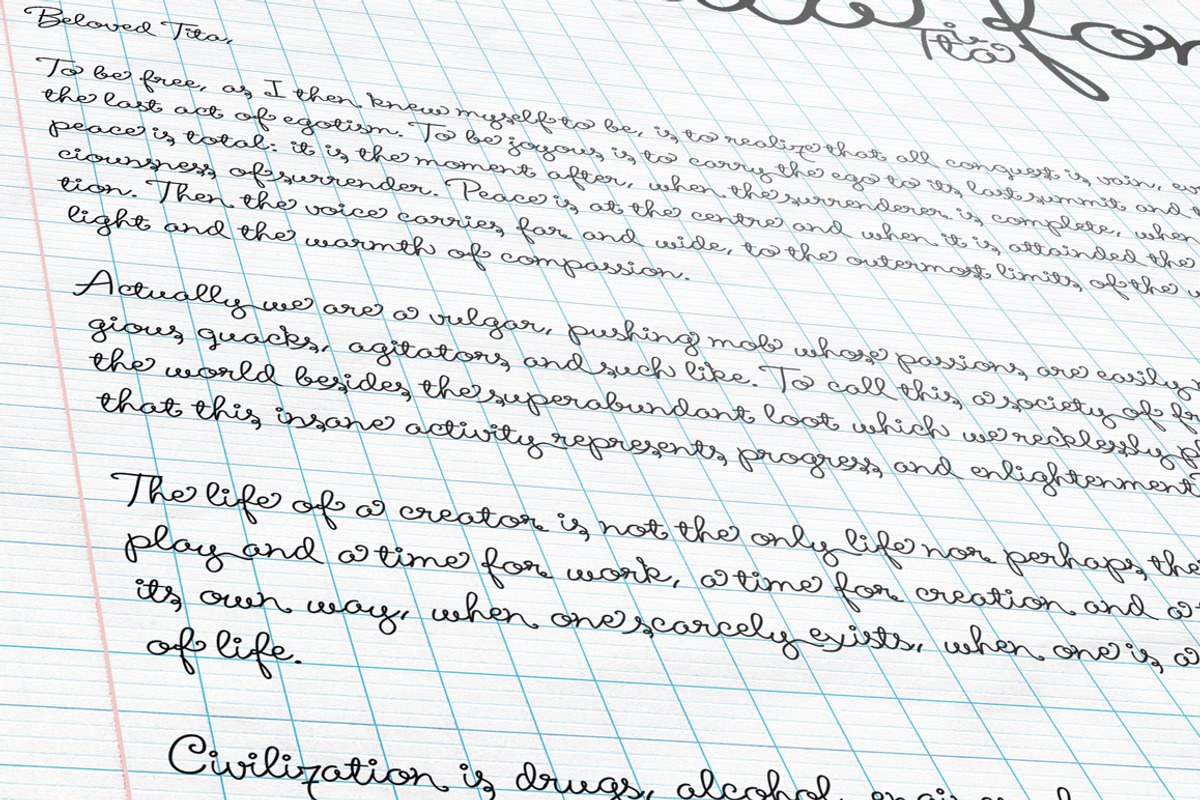 for
Tita
Beloved Tita,
To be free, as I then knew myself to be, is to realize that all conquest is vain, ev
the last act of egotism. To be joyous is to carry the ego to its last summit and
peace is total: it is the moment after, when the surrenderer is complete, when
ciousness of surrender. Peace is at the centre and when it is attainded the
tion. Then the voice carries far and wide, to the outermost limits of the
light and the warmth of compassion.
Actually we are a vulgar, pushing mob whose passions are easily
gious quacks, agitators and such like. To call this a society of fr
the world besides the superabundant loot which we recklessly p
that this insane activity represents progress and enlightenment
The life of a creator is not the only life nor perhaps the
play and a time for work, a time for creation and a
its own way, when one scarcely exists, when one is a
of life.
Civilization is drugs, alcohol,